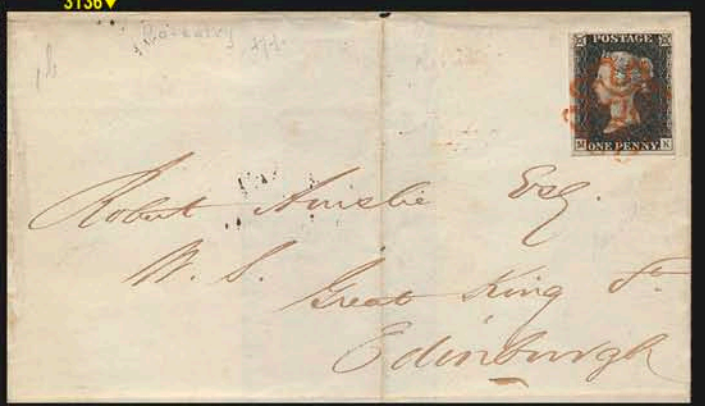 3136
POSTAGE
M ONE PENNY K
Robert Ainslie Esq.
W. S.
Great King St.
Edinburgh